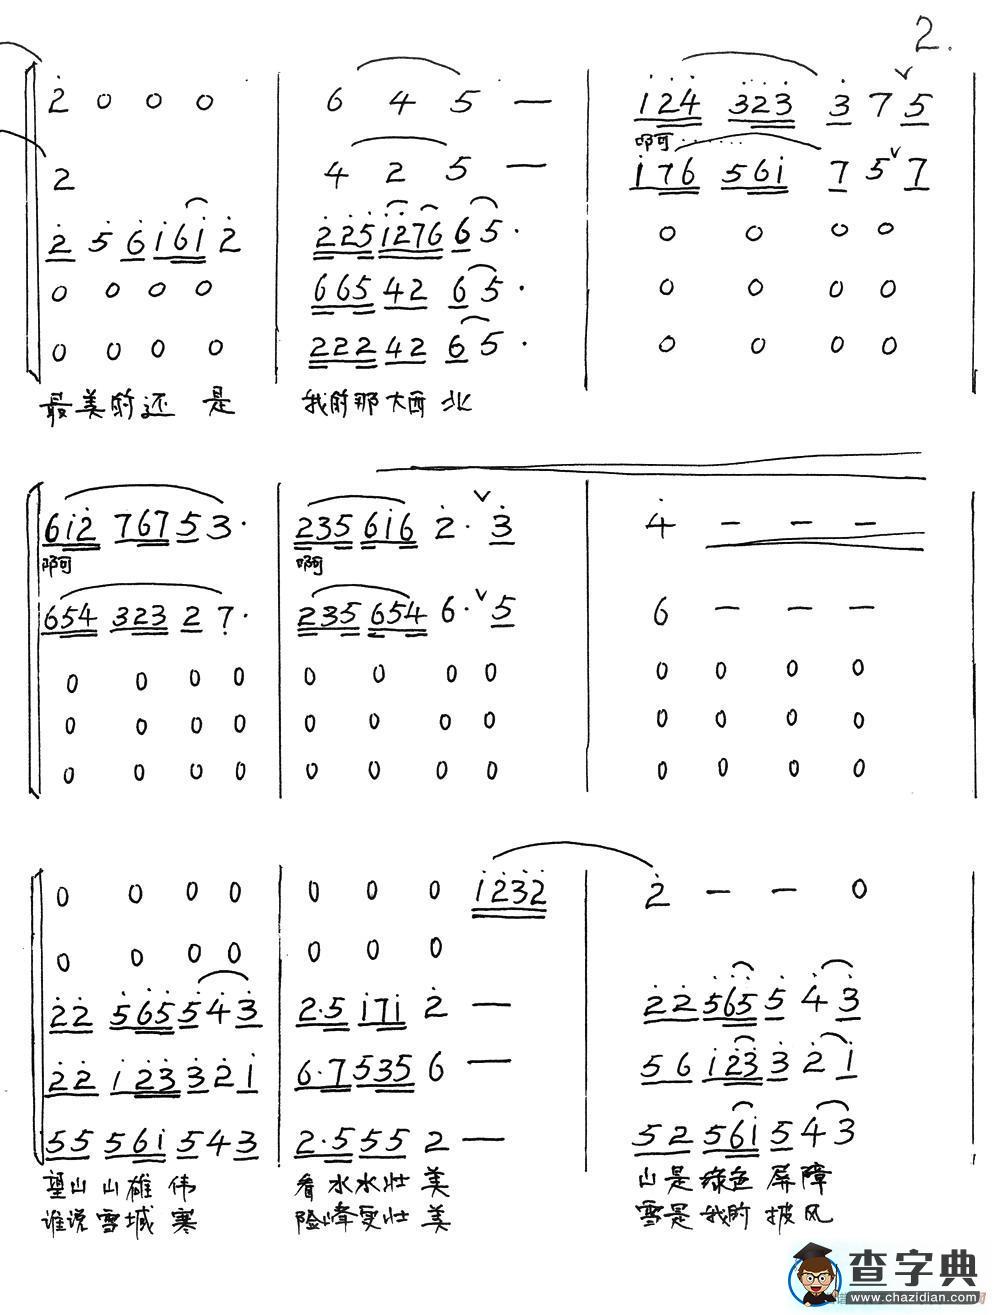 2.
2 0 0 0 6 4 5 — 1 2 4 3 2 3 3 7 5
啊
2 4 2 5 — 1 7 6 5 6 1 7 5 7
2 5 6 1 6 1 2 2 2 5 1 2 7 6 6 5 · 0 0 0 0
0 0 0 0 6 6 5 4 2 6 5 · 0 0 0 0
0 0 0 0 2 2 2 4 2 6 5 · 0 0 0 0
最美的还是 我的那大西北
6 1 2 7 6 7 5 3 · 2 3 5 6 1 6 2 · 3 4 — — —
啊 啊
6 5 4 3 2 3 2 7 · 2 3 5 6 5 4 6 · 5 6 — — —
0 0 0 0 0 0 0 0 0 0 0 0
0 0 0 0 0 0 0 0 0 0 0 0
0 0 0 0 0 0 0 0 0 0 0 0
0 0 0 0 0 0 0 1 2 3 2 2 — — 0
0 0 0 0 0 0 0
2 2 5 6 5 5 4 3 2 · 5 1 7 1 2 — 2 2 5 6 5 5 4 3
2 2 1 2 3 3 2 1 6 · 7 5 3 5 6 — 5 6 1 2 3 3 2 1
5 5 5 6 1 5 4 3 2 · 5 5 5 2 — 5 2 5 6 1 5 4 3
望山山雄伟 看水水壮美 山是绿色屏障
谁说雪域寒 险峰更壮美 雪是我的披风
查字典
www.chazidian.com